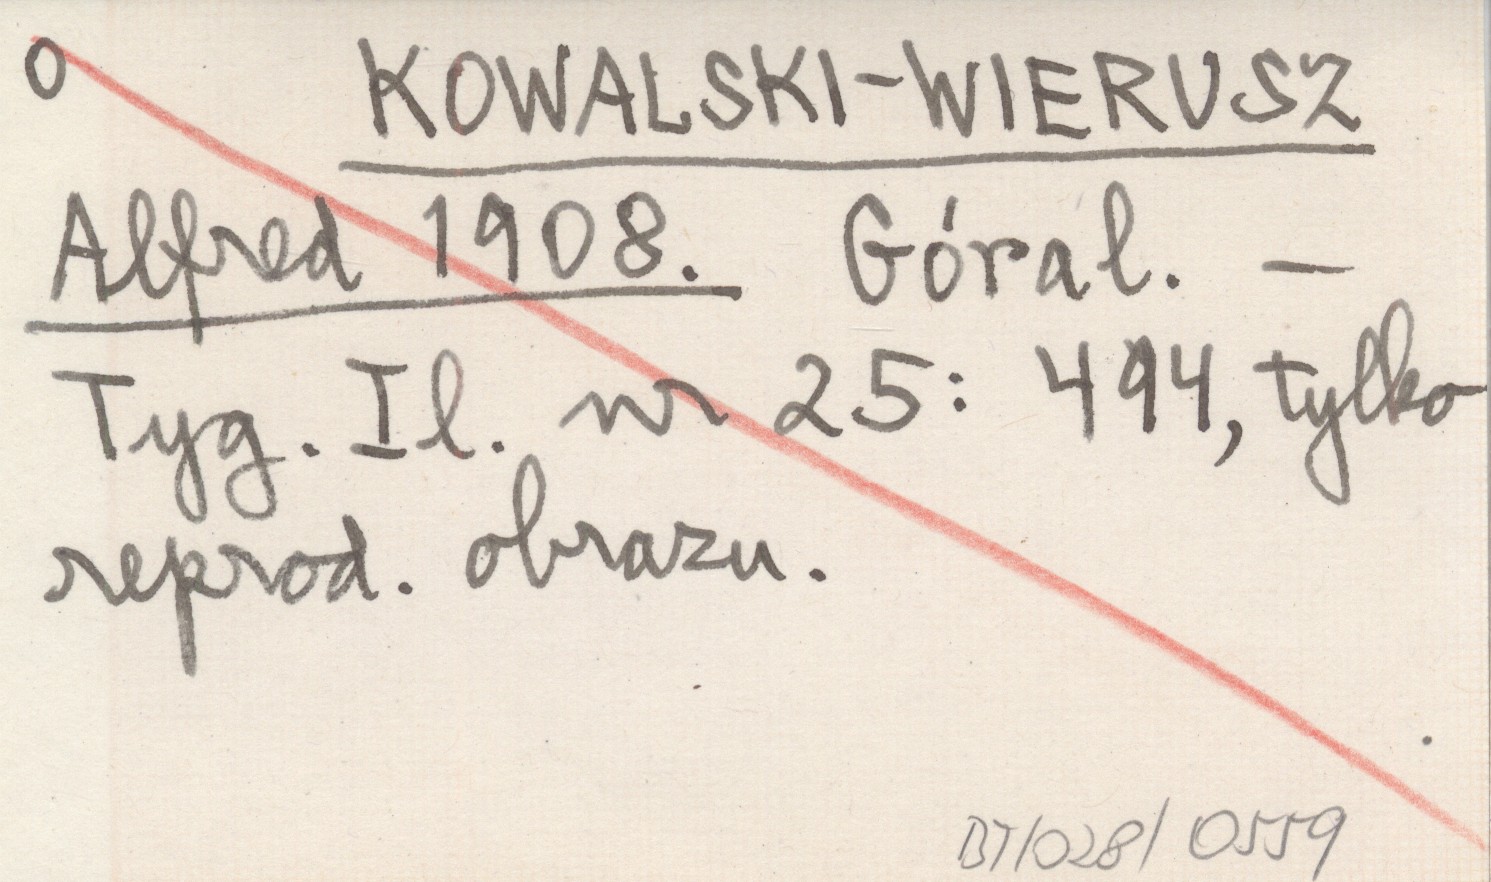 O KOWALSKI-WIERUSZ
Alfred 1908. Góral. —
Tyg. Il. nr 25: 494, tylko
reprod. obrazu.
BT/028/0559